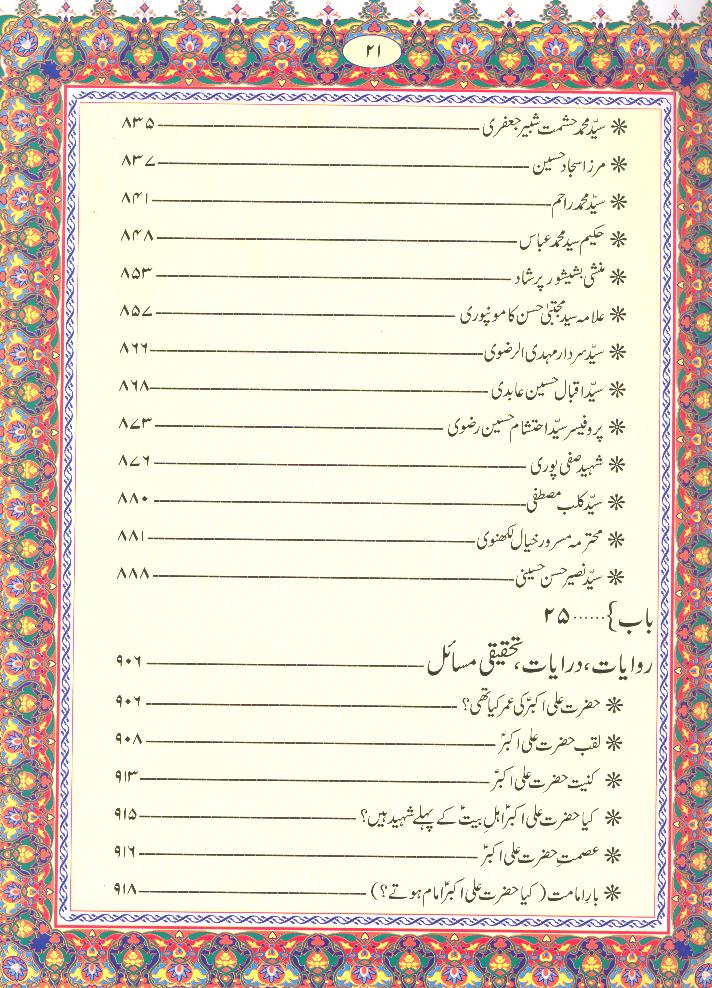 ۲۱
❋ سیّد محمد حشمت شبیر جعفری ۸۳۵
❋ مرزا سجاد حسین ۸۳۷
❋ سیّد محمد راحم ۸۴۱
❋ حکیم سید محمد عباس ۸۴۸
❋ منشی بشیشور پرشاد ۸۵۳
❋ علامہ سید مجتبیٰ حسن کامونپوری ۸۵۷
❋ سیّد سردار مہدی الرضوی ۸۶۶
❋ سیّد اقبال حسین عابدی ۸۶۸
❋ پروفیسر سیّد احتشام حسین رضوی ۸۷۳
❋ شہید صفی پوری ۸۷۶
❋ سیّد کلب مصطفی ۸۸۰
❋ محترمہ مسرور خیال لکھنوی ۸۸۱
❋ سیّد نصیر حسن حسینی ۸۸۸
باب} ...... ۲۵
روایات، درایات، تحقیقی مسائل ۹۰۶
❋ حضرت علی اکبرؑ کی عمر کیا تھی؟ ۹۰۶
❋ لقب حضرت علی اکبرؑ ۹۰۸
❋ کنیت حضرت علی اکبرؑ ۹۱۳
❋ کیا حضرت علی اکبرؑ اہلِ بیتؑ کے پہلے شہید ہیں؟ ۹۱۵
❋ عصمتِ حضرت علی اکبرؑ ۹۱۶
❋ بارِ امامت (کیا حضرت علی اکبرؑ امام ہوتے؟) ۹۱۸